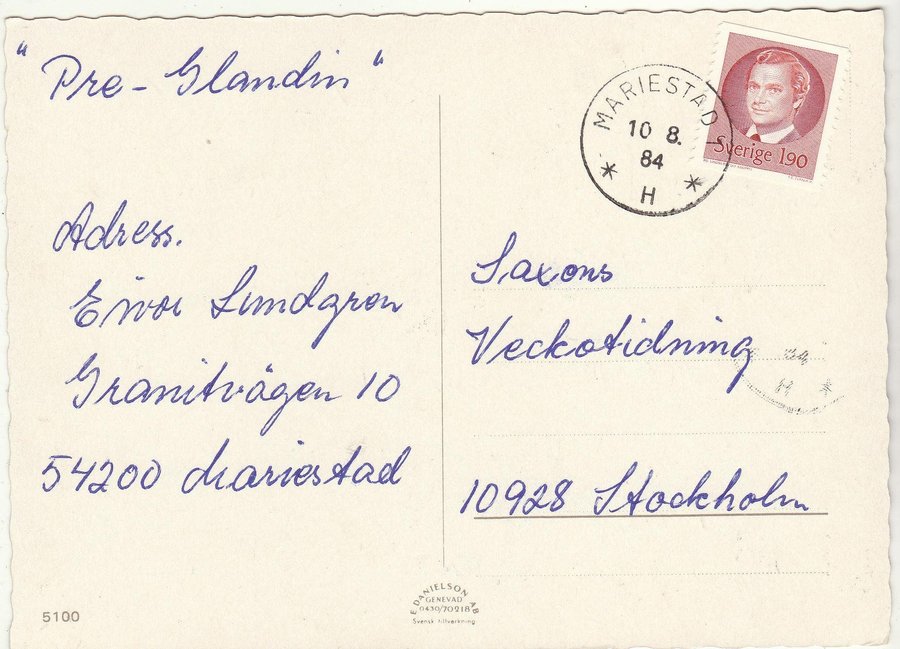 "Pre-Glandin"
Adress.
Eivor Lundgren
Granitvägen 10
54200 Mariestad
MARIESTAD
10 8.
84
H
Sverige 190
Saxons
Veckotidning
84
H
10928 Stockholm
5100
E. DANIELSON AB
GENEVAD
0430/70218
Svensk tillverkning